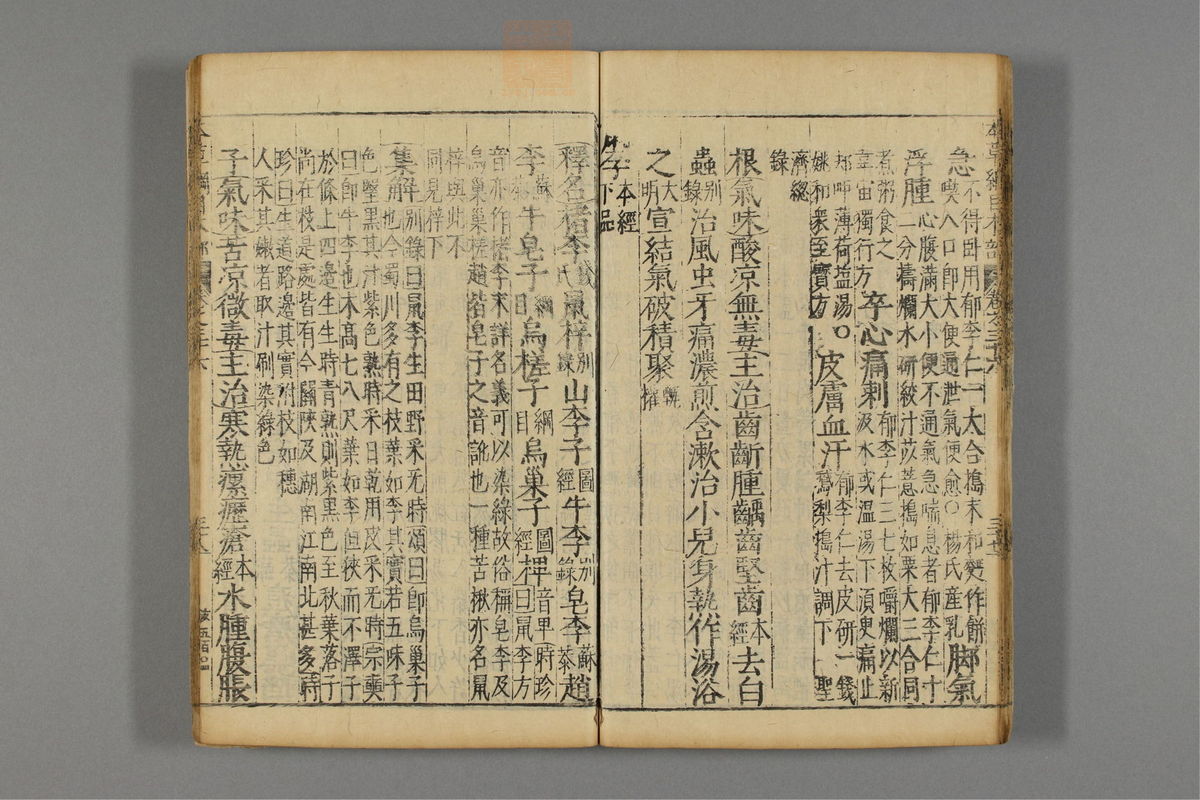 急不得卧用郁李仁一大合搗末和麪作餅
喫入口即大便通泄氣便愈○楊氏産乳脚氣
浮腫心腹滿大小便不通氣急喘息者郁李仁十
二分擣爛水研絞汁苡薏搗如粟大三合同
煮粥食之
韋宙獨行方卒心痛刺郁李仁三七枚嚼爛以新
汲水或温湯下須臾痛止
却呷薄荷塩湯○皮膚血汗郁李仁去皮研一錢
鵞梨搗汁調下聖
姚和衆至寶方
濟總
錄
根氣味酸凉無毒主治齒齗腫齲齒堅齒本經去白
蟲别錄治風虫牙痛濃煎含漱治小兒身熱作湯浴
之大明宣結氣破積聚甄權
李子本經下品
釋名楮李錢氏鼠梓别錄山李子圖經牛李别錄皂李蘇恭趙
李蘇恭牛皂子綱目烏槎子綱目烏巢子圖經椑音卑時珍
曰鼠李方
音亦作楮李未詳名義可以染綠故俗稱皂李及
烏巢巢槎趙皆皂子之音訛也一種苦楸亦名鼠
梓與此不
同見梓下
集解别錄曰鼠李生田野采无時頌曰即烏巢子
也今蜀川多有之枝葉如李其實若五味子
色瑿黑其汁紫色熟時采日乾用皮采无時宗奭
曰即牛李也木高七八尺葉如李但狹而不澤子
於條上四邊生生時青熟則紫黑色至秋葉落子
尚在枝是處皆有今關陜及湖南江南北甚多時
珍曰生道路邊其實附枝如穗
人采其嫩者取汁刷染綠色
子氣味苦凉微毒主治寒熱瘰癧瘡本經水腫腹脹